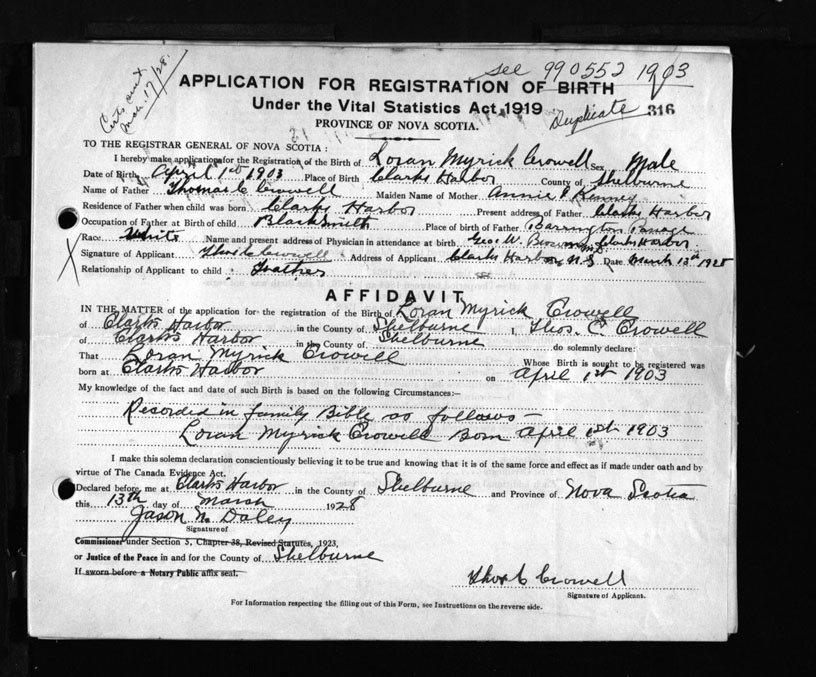 see 990552 1903
Certs sent
Mar. 17/28.
APPLICATION FOR REGISTRATION OF BIRTH
Under the Vital Statistics Act, 1919
Duplicate 316
PROVINCE OF NOVA SCOTIA.
TO THE REGISTRAR GENERAL OF NOVA SCOTIA:
I hereby make application for the Registration of the Birth of Loran Myrick Crowell Sex Male
Date of Birth April 1st 1903 Place of Birth Clarks Harbor County of Shelburne
Name of Father Thomas C Crowell Maiden Name of Mother Annie Kenney
Residence of Father when child was born Clarks Harbor Present address of Father Clarks Harbor
Occupation of Father at Birth of child BlackSmith Place of birth of Father Barrington Passage
Race White Name and present address of Physician in attendance at birth Geo. W. Clarks Harbor
Signature of Applicant Thos C Crowell Address of Applicant Clarks Harbor N.S Date March 13th 1928
Relationship of Applicant to child Father
AFFIDAVIT
IN THE MATTER of the application for the registration of the Birth of Loran Myrick Crowell
of Clarks Harbor in the County of Shelburne I, Thos. C. Crowell
of Clarks Harbor in the County of Shelburne do solemnly declare:
That Loran Myrick Crowell Whose Birth is sought to be registered was
born at Clarks Harbor on April 1st 1903
My knowledge of the fact and date of such Birth is based on the following Circumstances:—
Recorded in family Bible as follows—
Loran Myrick Crowell Born April 1st 1903
I make this solemn declaration conscientiously believing it to be true and knowing that it is of the same force and effect as if made under oath and by
virtue of The Canada Evidence Act.
Declared before me at Clarks Harbor in the County of Shelburne and Province of Nova Scotia
this 13th day of March 1928
Jason N. Daley
Signature of
Commissioner under Section 5, Chapter 38, Revised Statutes, 1923,
or Justice of the Peace in and for the County of Shelburne
If sworn before a Notary Public affix seal.
Thos C Crowell
Signature of Applicant.
For Information respecting the filling out of this Form, see Instructions on the reverse side.